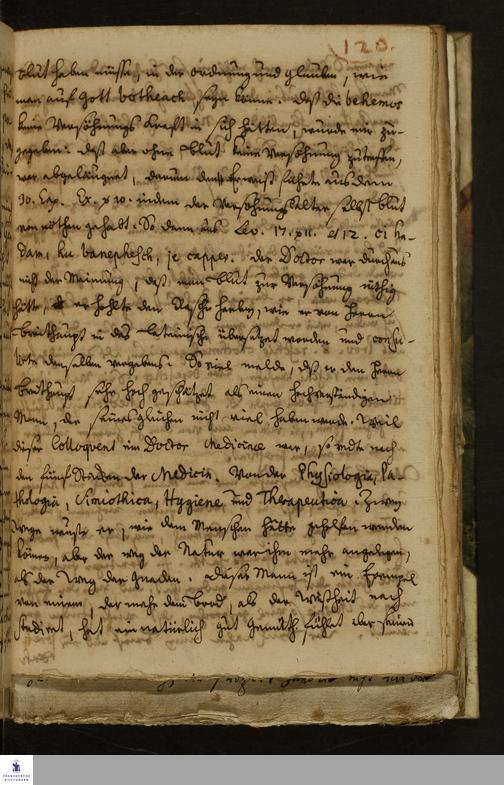 120.
Blut haben müsse, in der Ordnung und Glauben, wie
man auf Gott botheach seyn könne. Daß die behemos
keine Versöhnungs Krafft in sich hätten, wurde mir zu-
gegeben: daß aber ohne Blut keine Versöhnung zutreffen,
war abgeläugnet, darum den Beweiß führte aus dem
30. Cap. Ex. v 10. indem der Versöhnungs Altar selbst Blut
vonnöthen gehabt. So dann aus Lev. 17. v 11. et 12. Ci ha-
dam, hu banephesch, je capper. Der Doctor war durchaus
nicht der Meinung, daß man Blut zur Versöhnung nöthig
hätte, er hohlte den Raschi herbey, wie er von Herrn
Breithaupt in das Lateinische übersetzet worden und consu-
lirte denselben vergebens. So viel melde, daß er den Herrn
Breithaupt sehr hoch geschätzet als einen hochverständigen
Mann, der seines gleichen nicht viel haben werde. Weil
dieser Colloquent ein Doctor Medicinae war, so redte nach
den fünf Theilen der Medicin. Von der Physiologia, Pa-
thologia, Simiothica, Hygiene und Therapeutica. Zwey
Wege wuste er, wie dem Menschen hätte geholfen werden
können, aber der weg der Natur war ihm mehr angelegen,
als der Weg der Gnaden. Dieser Mann ist ein Exempel
von einem, der mehr dem Brod, als der Weißheit nach
studiret, hat ein natürlich gut Gemüth, führet aber seinen
FRANCKESCHE
STIFTUNGEN